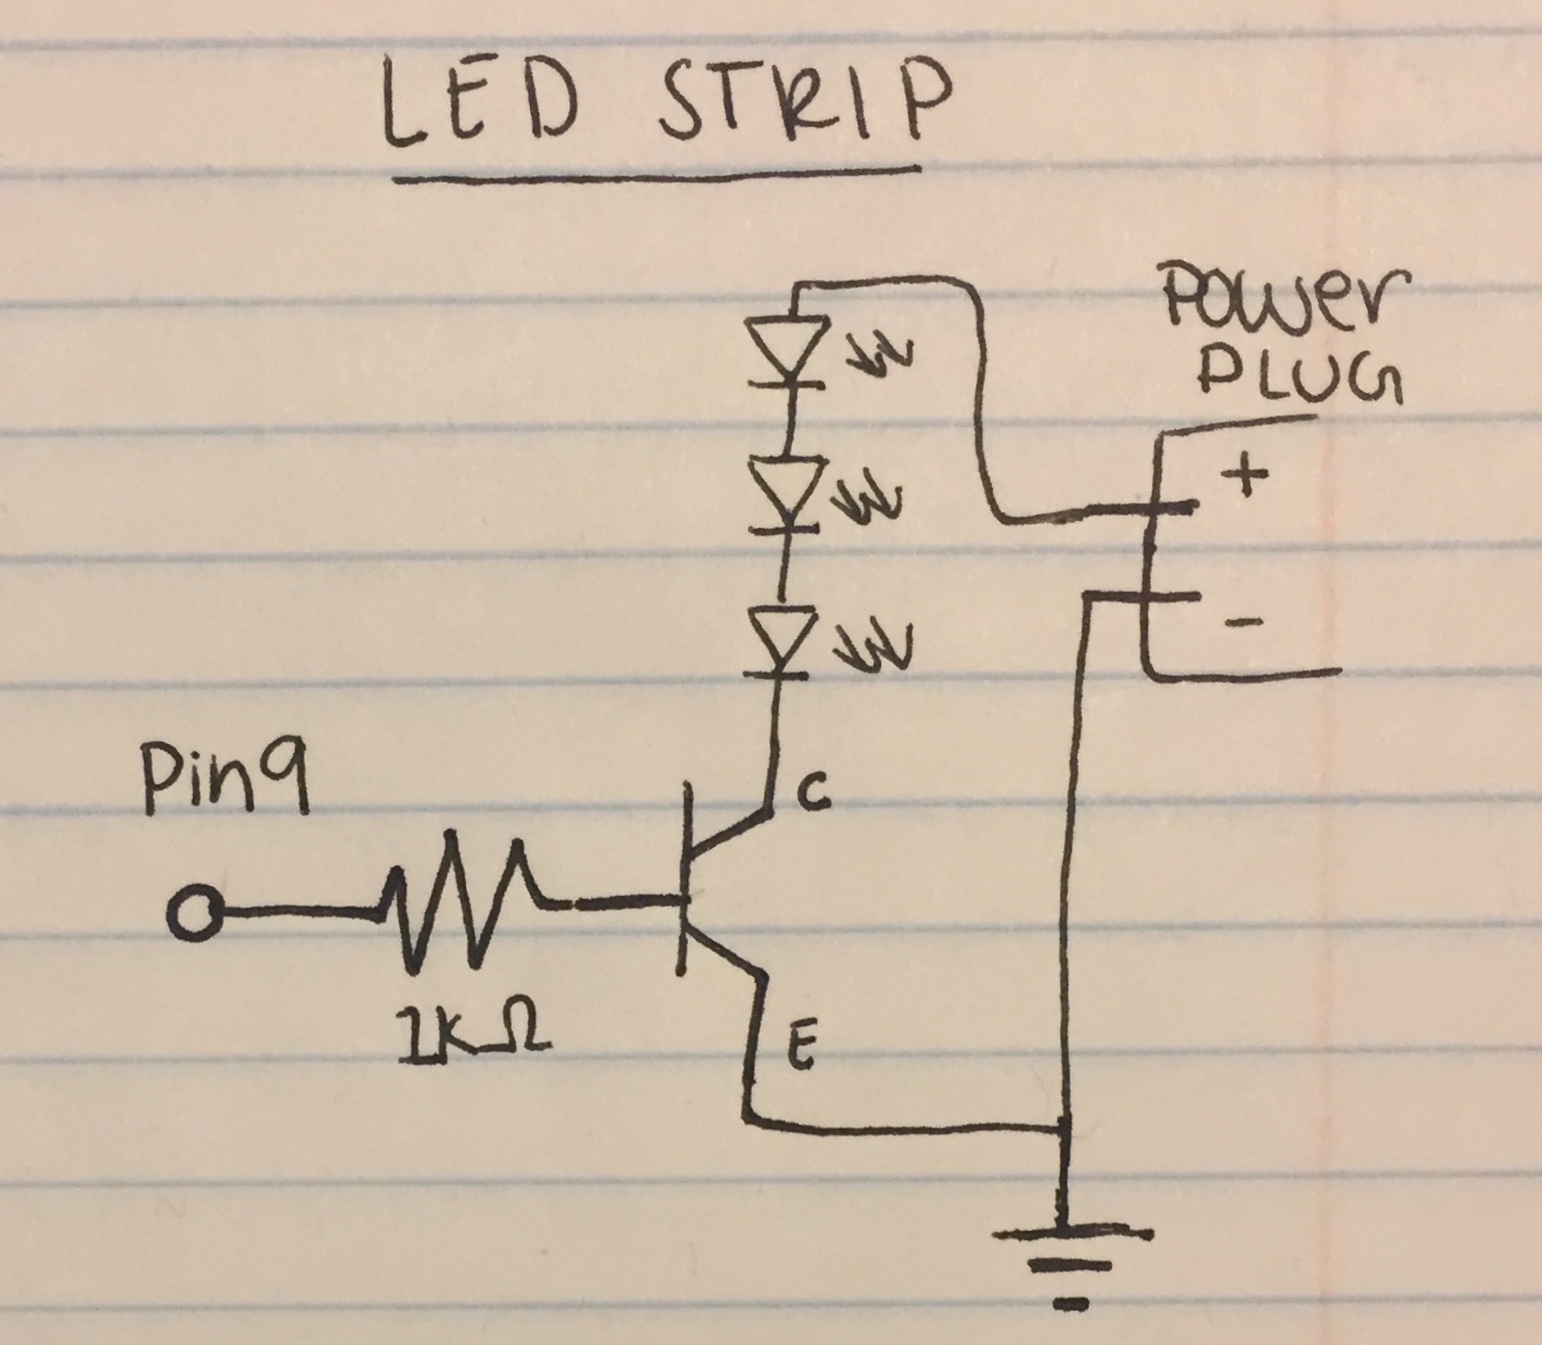 LED STRIP
Power
PLUG
+
-
Pin9
C
1KΩ
E